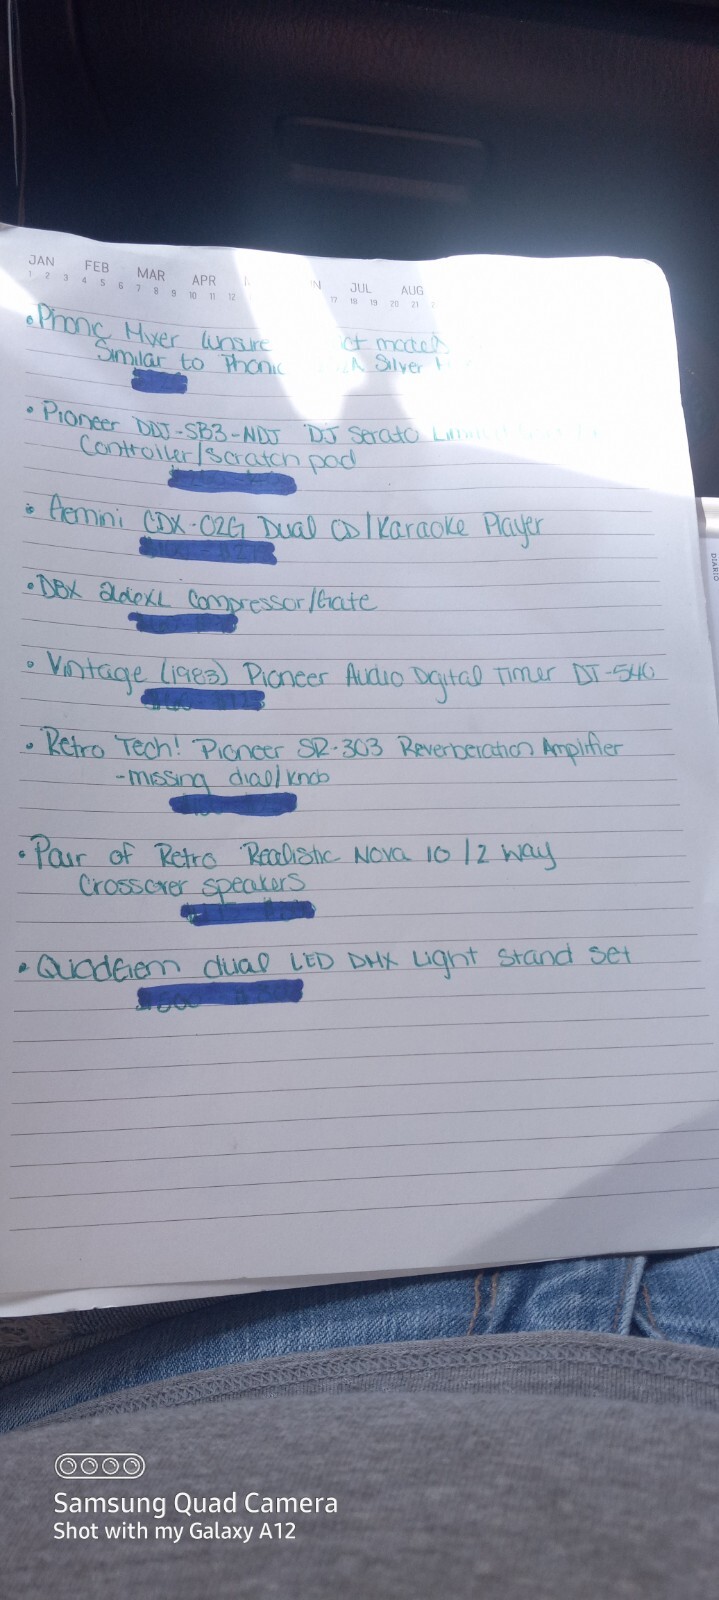 JAN FEB MAR APR JUL AUG
1 2 3 4 5 6 7 8 9 10 11 12 17 18 19 20 21
•Phonic Mixer (unsure model
Similar to Phonic Silver
•Pioneer DDJ-SB3-NDJ DJ Serato
Controller/Scratch pad
• Gemini CDX-02G Dual CD/Karaoke Player
•DBX Compressor/Gate
• Vintage (1983) Pioneer Audio Digital Timer DT-540
• Retro Tech! Pioneer SR-303 Reverberation Amplifier
-missing dial/knob
•Pair of Retro Realistic Nova 10 /2 way
Crossover speakers
• dual LED DMX Light Stand Set
DIARIO
Samsung Quad Camera
Shot with my Galaxy A12